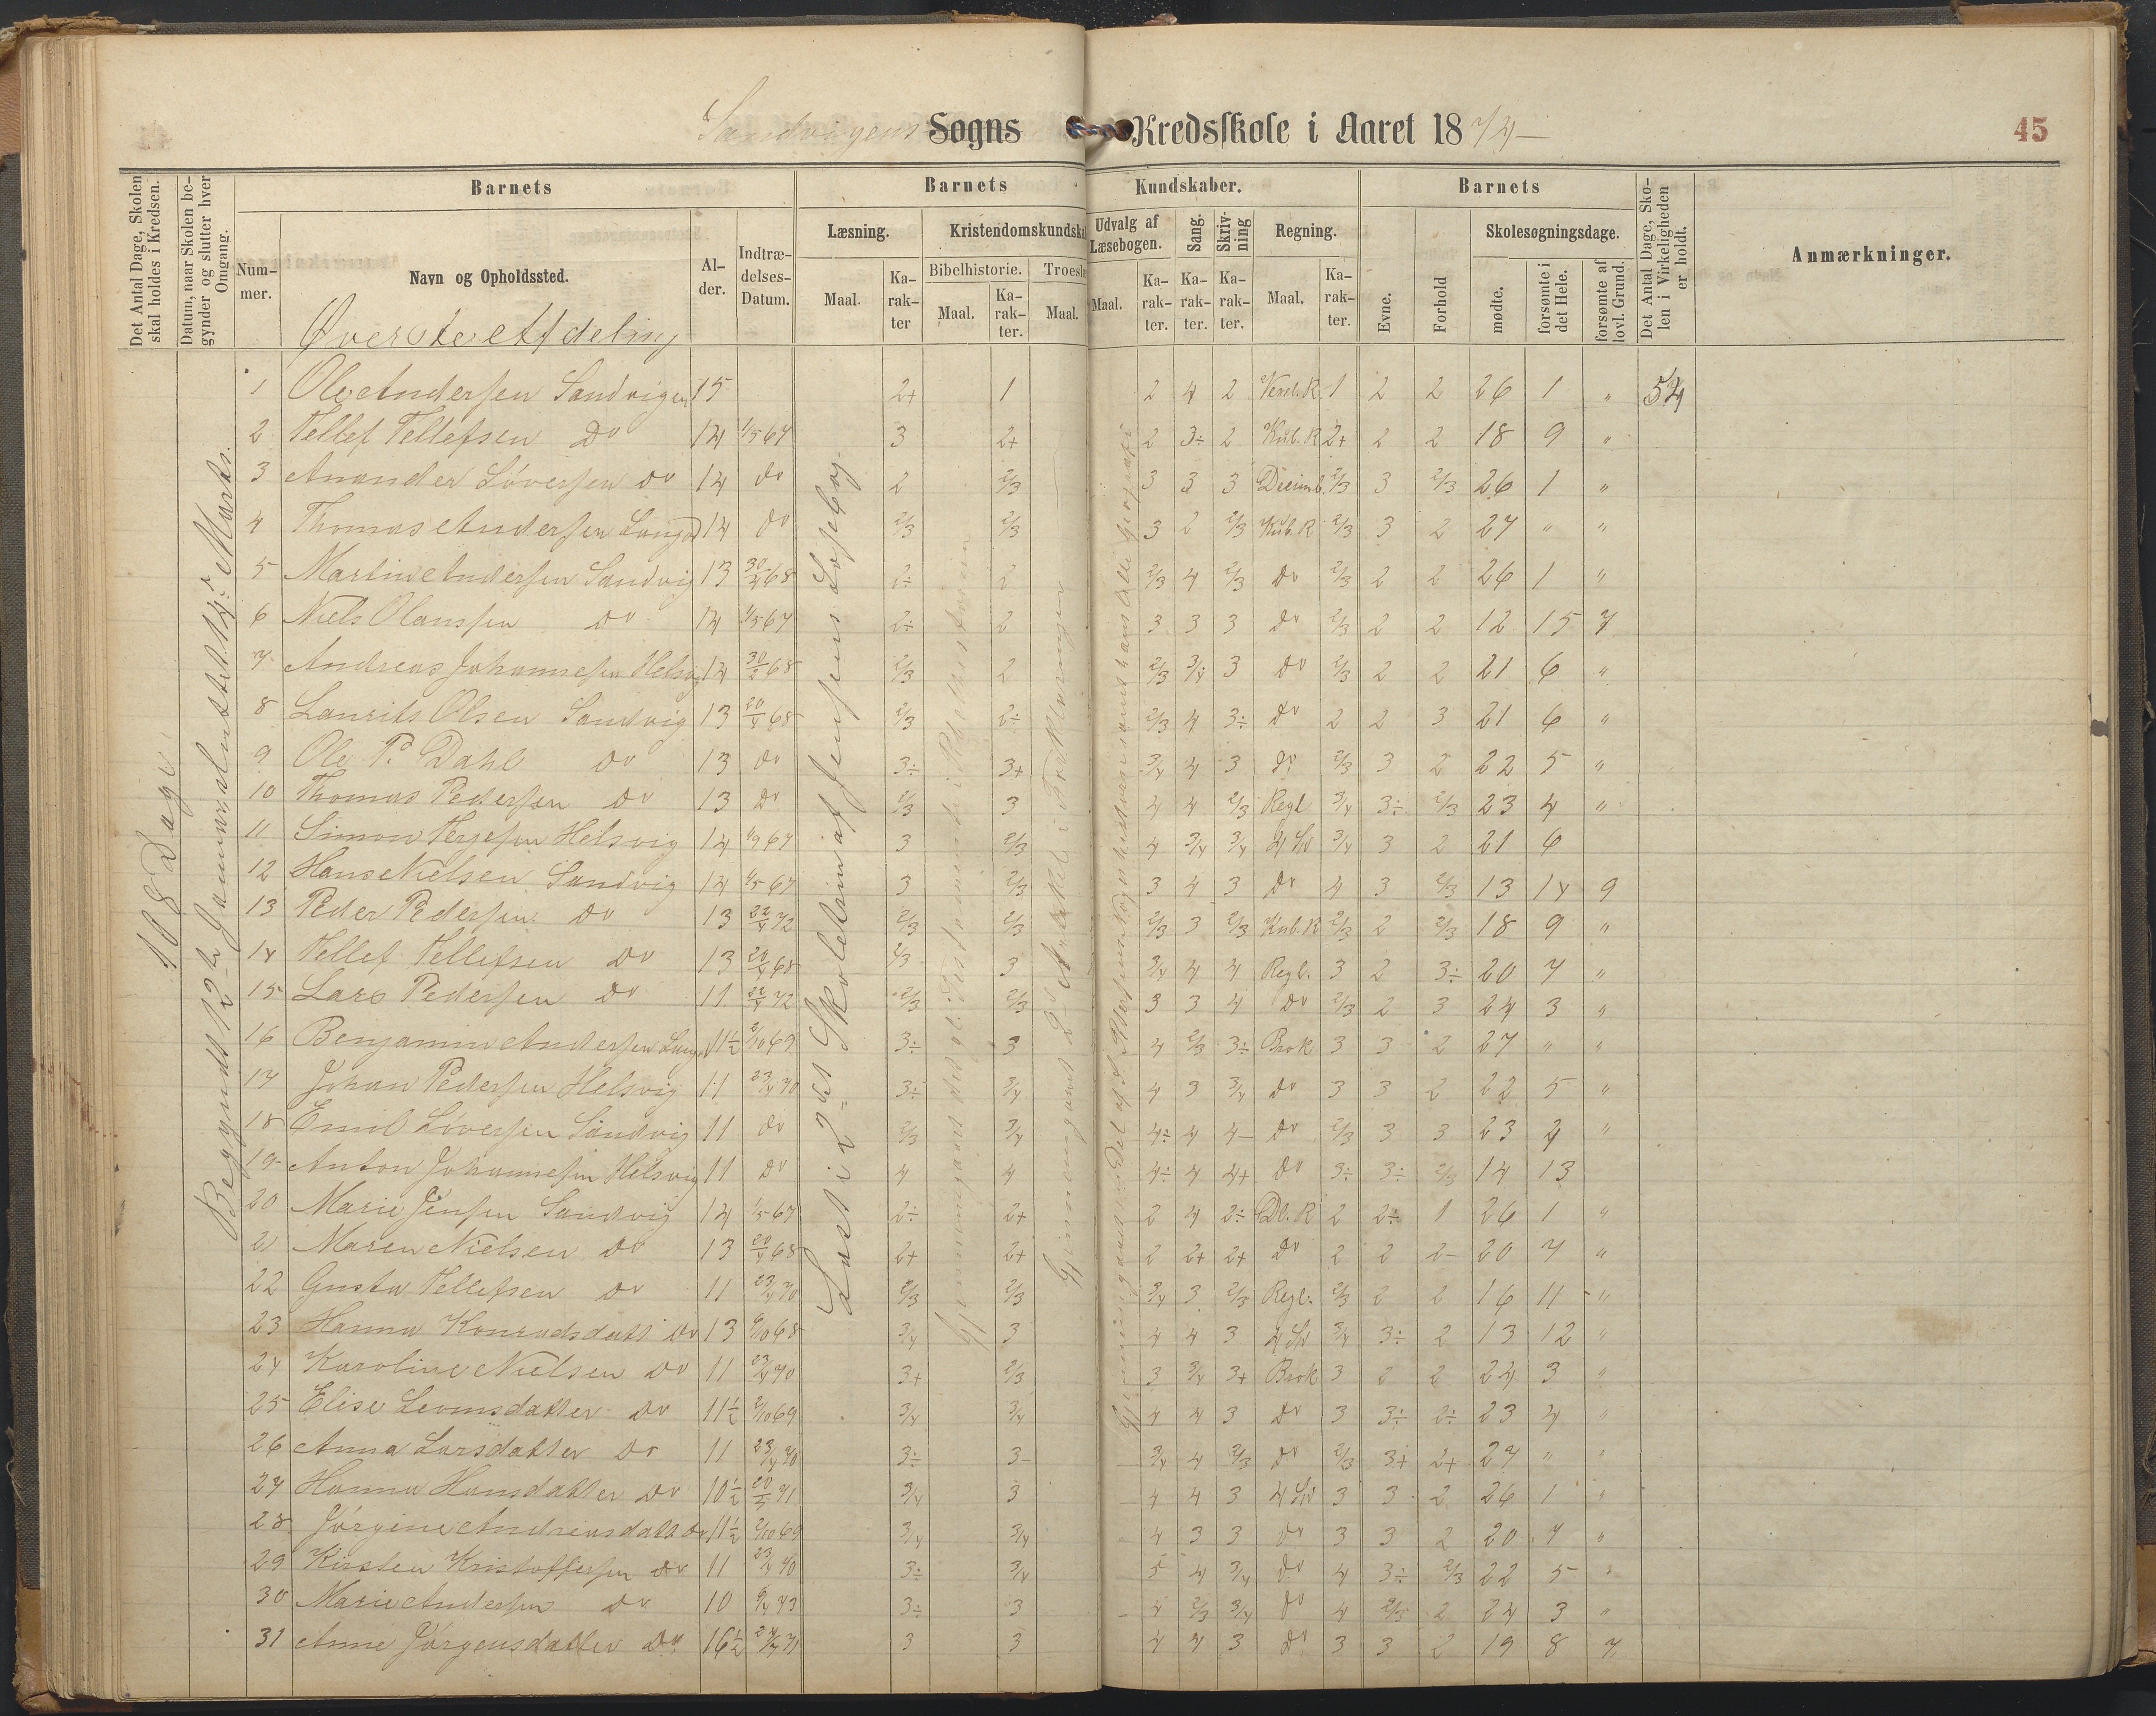 Sandvigens Sogns Kredsskole i Aaret 1874
45
Det Antal Dage, Skolen skal holdes i Kredsen.
Datum, naar Skolen begynder og slutter hver Omgang.
Barnets
Num-mer.
Navn og Opholdssted.
Al-der.
Indtræ-delses-Datum.
Barnets Kundskaber.
Læsning.
Maal.
Ka-rak-ter
Kristendomskundska
Bibelhistorie.
Maal.
Ka-rak-ter.
Troeslæ
Maal.
Udvalg af Læsebogen.
Maal.
Ka-rak-ter.
Sang.
Ka-rak-ter.
Skriv-ning
Ka-rak-ter.
Regning.
Maal.
Ka-rak-ter.
Barnets
Evne.
Forhold
Skolesøgningsdage.
mødte.
forsømte i det Hele.
forsømte af lovl. Grund.
Det Antal Dage, Sko-len i Virkeligheden er holdt.
Anmærkninger.
Øverste Afdeling
108 Dage
Begyndt 12te Januar sluttet 14de Marts.
Læst i 2det Skoletrin af Jensens Læsebog
1 Ole Andersen Sandvigen 15 2+ 1 2 4 2 1 2 2 26 1 " 54
2 Tellef Tellefsen Do 14 1/5 67 3 2+ 2 3÷ 2 Kub.R 2+ 2 2 18 9 "
3 Anander Löversen Do 14 Do 2 2/3 3 3 3 Decimb. 2/3 3 2/3 26 1 "
4 Thomas Andersen 14 Do 2/3 2/3 3 2 2/3 Kub.R 2/3 3 2 27 " "
5 Martin Andersen Sandvig 13 30/4 68 2÷ 2 2/3 4 2/3 Do 2/3 2 2 26 1 "
6 Niels Olanssen Do 14 1/5 67 2÷ 2 3 3 3 Do 2/3 2 2 12 15 7
7 Andreas Johannessen Helsvig 14 2/3 2 2/3 3/4 3 Do 2/3 2 2 21 6 "
8 Laurits Olsen Sandvig 13 20/4 68 2/3 2÷ 2/3 4 3÷ Do 2 2 3 21 6 "
9 Ole P. Dahl Do 13 Do 3÷ 3+ 3/4 4 3 Do 2/3 3 2 22 5 "
10 Thomas Pedersen Do 13 Do 2/3 3 4 4 2/3 Regl 3/4 3÷ 2/3 23 4 "
11 Simon Terjesen Helsvig 14 1/9 67 3 2/3 4 3/4 3/4 3/4 3 2 21 6
12 Hans Nielsen Sandvig 14 1/5 67 3 2/3 3 4 3 Do 4 3 2/3 13 14 9
13 Peder Pedersen Do 13 22/4 72 2/3 2/3 2/3 3 2/3 Kub.R 2/3 2 2/3 18 9 "
14 Tellef Tellefsen Do 13 20/4 68 2/3 3 3/4 4 4 Regl. 3 2 3÷ 20 7 "
15 Lars Pedersen Do 11 22/4 72 2/3 2/3 3 3 4 Do 2/3 2 3 24 3 "
16 Benjamin Andersen 11½ 2/10 69 3÷ 3 4 2/3 3÷ Brok 3 3 2 27 " "
17 Johan Pedersen Helsvig 11 23/4 70 3÷ 3/4 4 3 3/4 Do 3 3 2 22 5 "
18 Emil Löversen Sandvig 11 Do 2/3 3/4 4÷ 4 4- Do 2/3 3 3 23 4 "
19 Anton Johannesen Helsvig 11 Do 4 4 4÷ 4 4+ Do 3÷ 3÷ 2/3 14 13
20 Marie Jensen Sandvig 14 1/5 67 2÷ 2+ 2 4 2÷ 2 2÷ 1 26 1 "
21 Maren Nielsen Do 13 20/4 68 2+ 2+ 2 2+ 2+ Do 2 2 2- 20 7 "
22 Gusta Tellefsen Do 11 23/4 70 2/3 2/3 3/4 3 2/3 Regl. 2/3 2 2 16 11 "
23 Hanna Konradsdatt Do 13 3/4 3 4 4 3 3/4 3÷ 2 13 12 "
24 Karoline Nielsen Do 11 23/4 70 3+ 2/3 3 3/4 3+ Brok 3 2 2 24 3 "
25 Elise Levinsdatter Do 11½ 2/10 69 3/4 3/4 4 4 3 Do 3 3÷ 2÷ 23 4 "
26 Anna Larsdatter Do 11 23/4 70 3÷ 3- 3/4 4 2/3 Do 2/3 3+ 2+ 27 " "
27 Hanna Hansdatter Do 10½ 3/4 3 4 4 3 3 3 2 26 1 "
28 Jörgine Andreasdatt Do 11½ 2/10 69 3/4 3/4 4 3 3 Do 3 3 2 20 7 "
29 Kirsten Kristoffersen Do 11 23/4 70 3÷ 3/4 5 4 3/4 Do 4 3÷ 2/3 22 5 "
30 Marie Andersen Do 10 3÷ 3 4 2/3 3/4 Do 4 2/3 2 24 3 "
31 Anne Jörgensdatter Do 3 3 4 4 3 Do 3 3 2 19 8 7